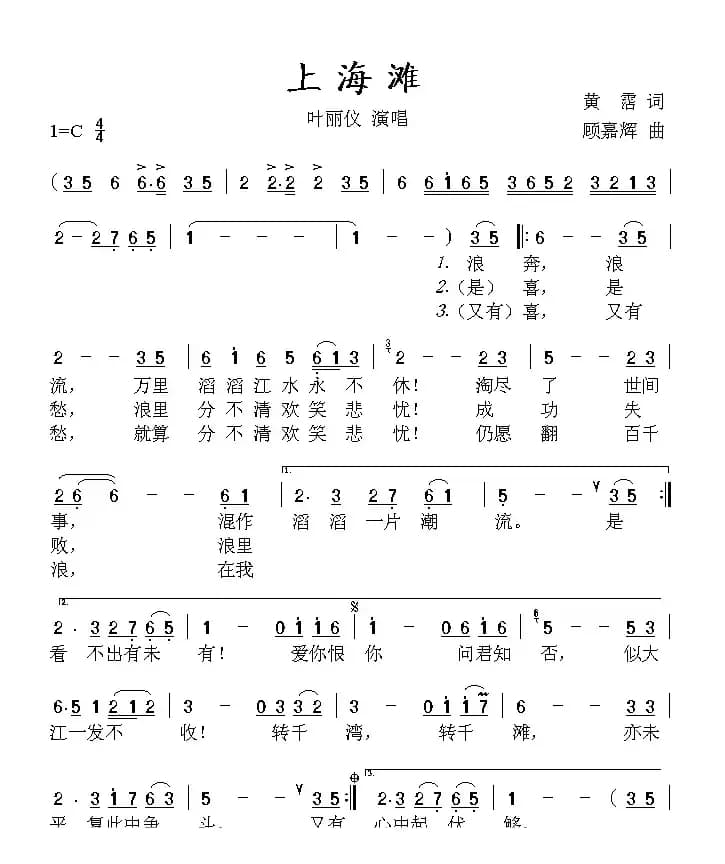 上海滩
黄霑 词
叶丽仪 演唱
1=C 4/4
顾嘉辉 曲
( 3 5 6 6·6 3 5 | 2 2·2 2 3 5 | 6 6 1 6 5 3 6 5 2 3 2 1 3 |
2 - 2 7 6 5 | 1 - - - | 1 - - ) 3 5 ‖: 6 - - 3 5 |
1. 浪 奔, 浪
2.(是) 喜, 是
3.(又有)喜, 又有
2 - - 3 5 | 6 1 6 5 6 1 3 | 3 2 - - 2 3 | 5 - - 2 3 |
流, 万里 滔滔江水永不 休! 淘尽 了 世间
愁, 浪里 分不清欢笑悲 忧! 成 功 失
愁, 就算 分不清欢笑悲 忧! 仍愿 翻 百千
1.
2 6 6 - - 6 1 | 2· 3 2 7 6 1 | 5 - - 3 5 :‖
事, 混作 滔 滔一片潮 流。 是
败, 浪里
浪, 在我
2.
2· 3 2 7 6 5 | 1 - 0 1 1 6 | 1 - 0 6 1 6 | 6 5 - - 5 3 |
看 不出有未 有! 爱你恨 你 问君知 否, 似大
6·5 1 2 1 2 | 3 - 0 3 3 2 | 3 - 0 1 1 7 | 6 - - 5 3 |
江一发不 收! 转千 湾, 转千 滩, 亦未
3.
2· 3 1 7 6 3 | 5 - - 3 5 :‖ 2· 3 2 7 6 5 | 1 - - ( 3 5 |
平 复此中争 斗, 又有 心中起 伏 够。